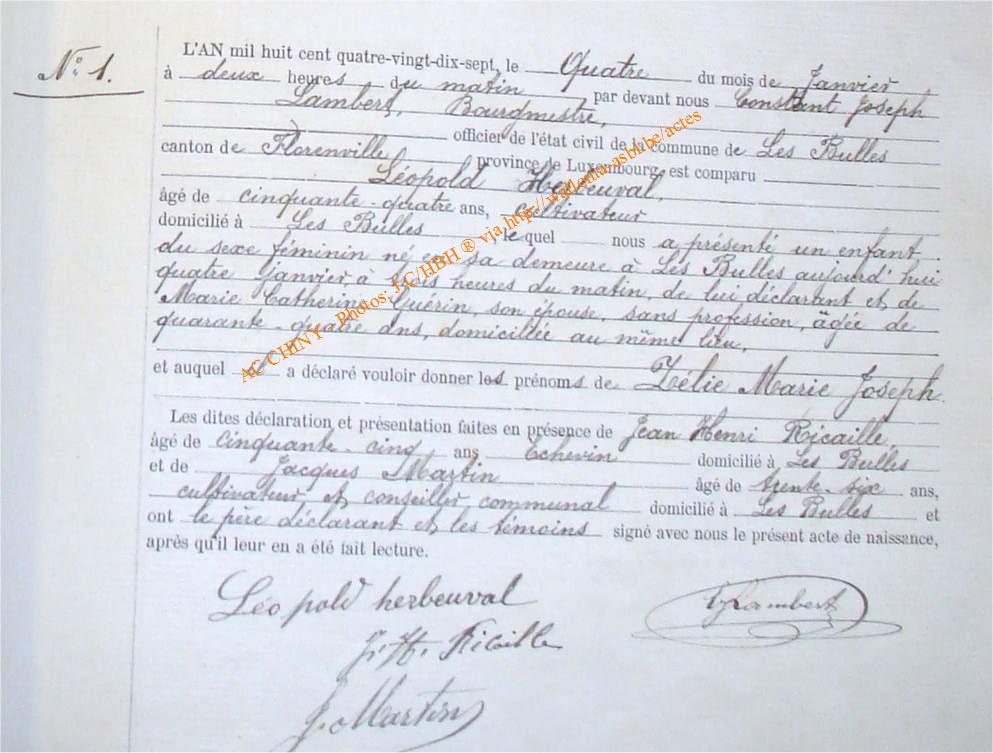 N° 1.
L'AN mil huit cent quatre-vingt-dix-sept, le Quatre du mois de Janvier
à deux heures du matin par devant nous Constant Joseph
Lambert, Bourgmestre,
officier de l'état civil de la commune de Les Bulles
canton de Florenville province de Luxembourg, est comparu
Léopold Herbeuval,
âgé de cinquante-quatre ans, cultivateur
domicilié à Les Bulles, lequel nous a présenté un enfant
du sexe féminin né en sa demeure à Les Bulles aujourd'hui
quatre janvier, à heures du matin, de lui déclarant et de
Marie Catherine Guérin, son épouse, sans profession, âgée de
quarante-quatre ans, domiciliée au même lieu,
et auquel il a déclaré vouloir donner les prénoms de Zélie Marie Joseph.
Les dites déclaration et présentation faites en présence de Jean Henri Ricaille
âgé de cinquante-cinq ans Echevin domicilié à Les Bulles
et de Jacques Martin âgé de trente-six ans,
cultivateur et conseiller communal domicilié à Les Bulles et
ont le père déclarant et les témoins signé avec nous le présent acte de naissance,
après qu'il leur en a été fait lecture.
Léopold herbeuval
Lambert
J. H. Ricaille
J. Martin
AC CHINY Photos: J.C/HBH ® via http://wallonia.asbl.be/actes